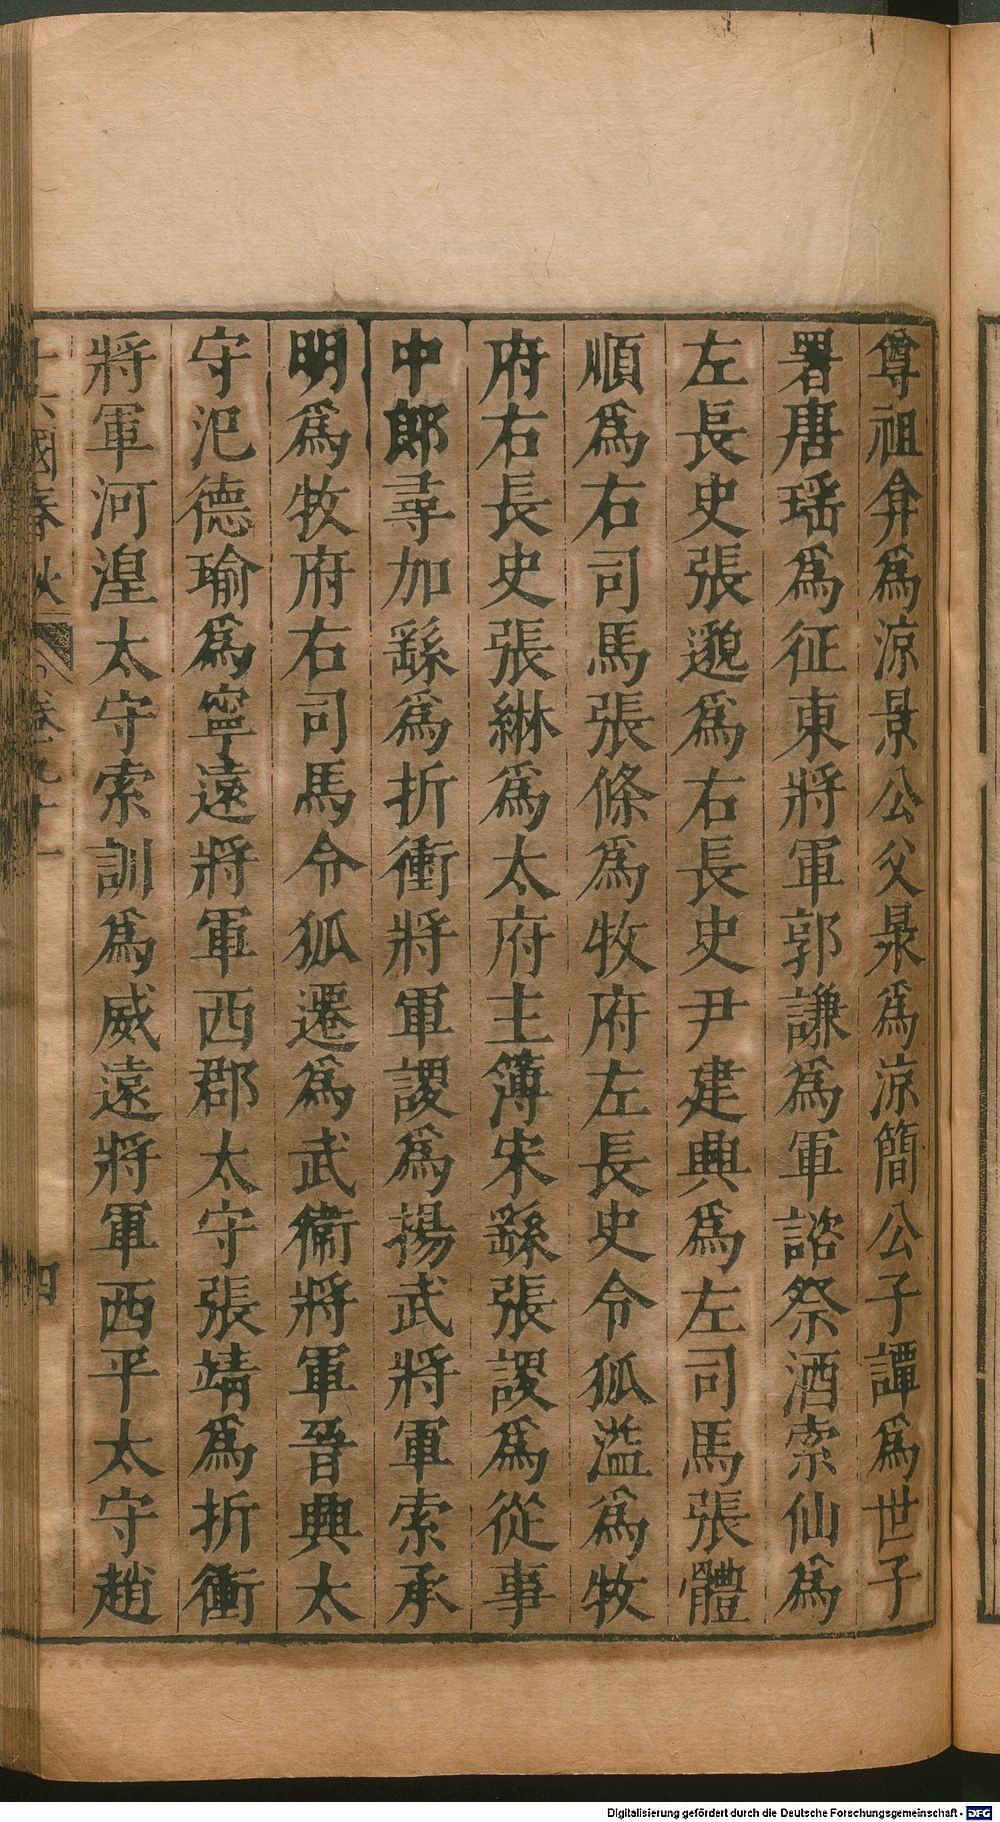 尊祖弇爲涼景公父㫤爲涼簡公子譚爲世子
署唐瑶爲征東將軍郭謙爲軍諮祭酒索仙爲
左長史張邈爲右長史尹建興爲左司馬張體
順爲右司馬張條爲牧府左長史令狐溢爲牧
府右長史張綝爲太府主簿宋繇張謖爲從事
中郎尋加繇爲折衝將軍謖爲揚武將軍索承
明爲牧府右司馬令狐遷爲武衛將軍晉興太
守氾德瑜爲寧遠將軍西郡太守張靖爲折衝
將軍河湟太守索訓爲威遠將軍西平太守趙
十六國春秋 卷九十一 四
Digitalisierung gefördert durch die Deutsche Forschungsgemeinschaft - DFG